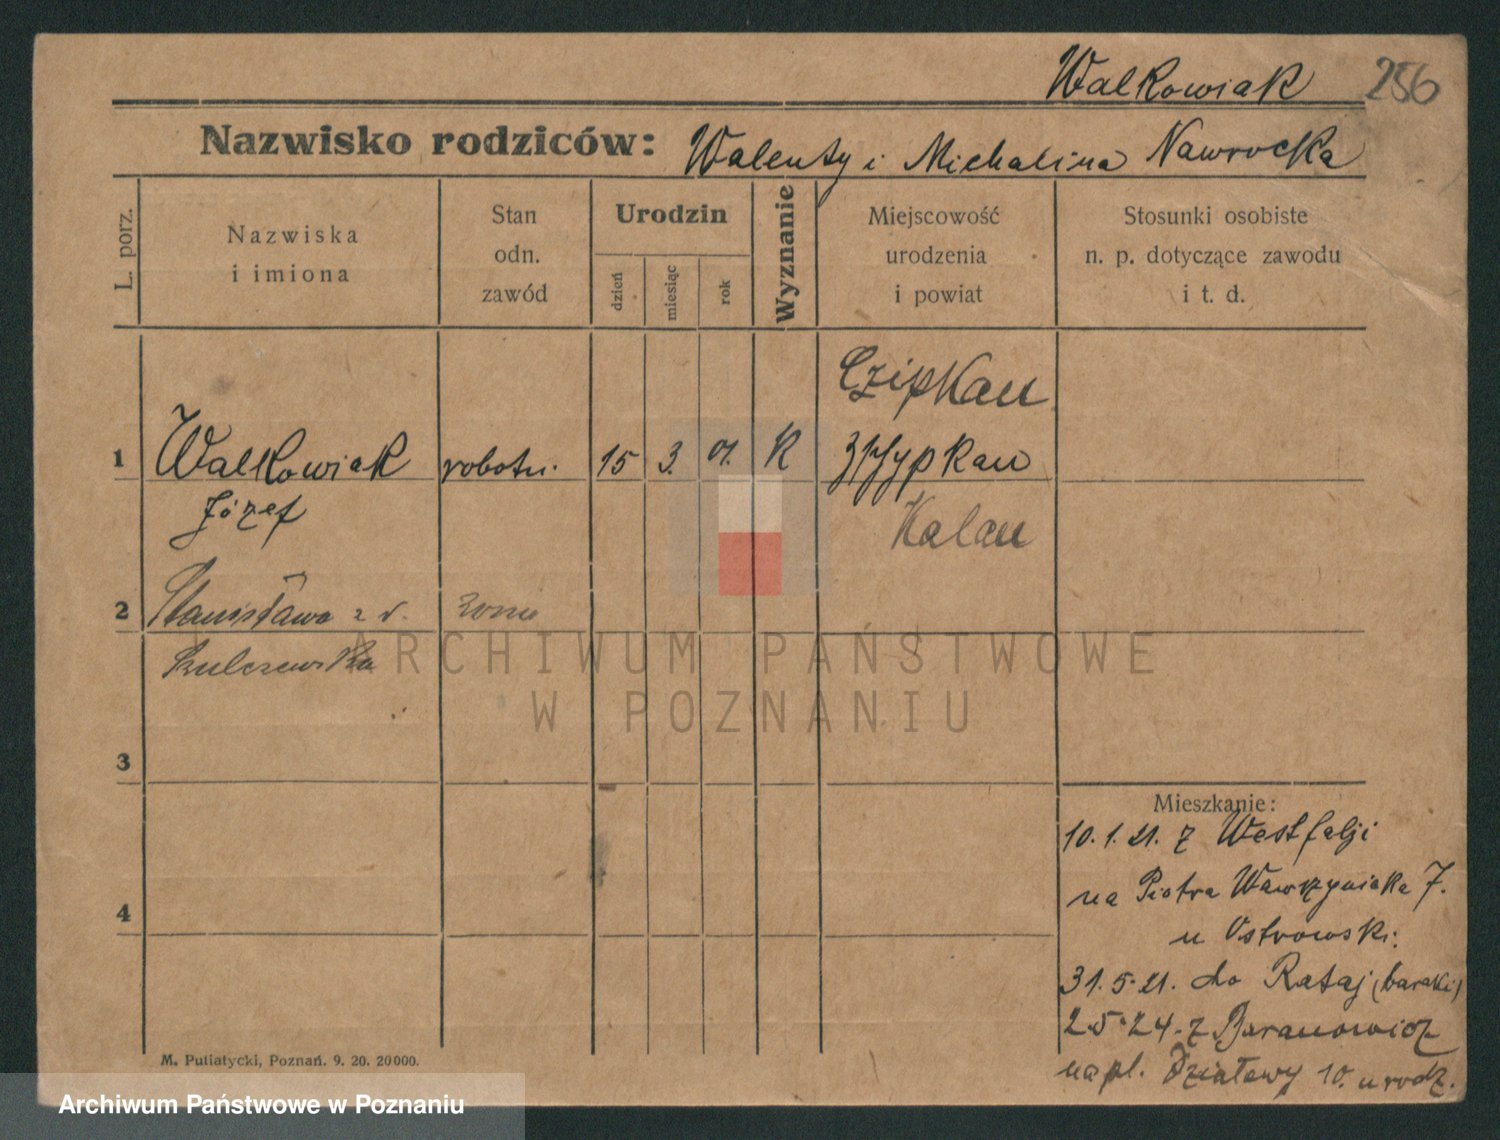 Walkowiak 256
Nazwisko rodziców: Walenty i Michalina Nawrocka
L. porz.
Nazwiska
i imiona
Stan
odn.
zawód
Urodzin
dzień
miesiąc
rok
Wyznanie
Miejscowość
urodzenia
i powiat
Stosunki osobiste
n. p. dotyczące zawodu
i t. d.
Czipkau
1 Walkowiak robotn. 15 3. 01. K
Józef
2 Stanisława z d.
Szulczewska
3
4
Mieszkanie:
10.1.21. z Westfalji
na Piotra Wawrzyniaka 7.
u Ostrowski.
31.5.21. do Rataj (baraki)
2.5.24. z Baranowicz
na pl. Działowy 10. u rodz.
M. Putiatycki, Poznań. 9. 20. 20000.
ARCHIWUM PAŃSTWOWE
W POZNANIU
Archiwum Państwowe w Poznaniu